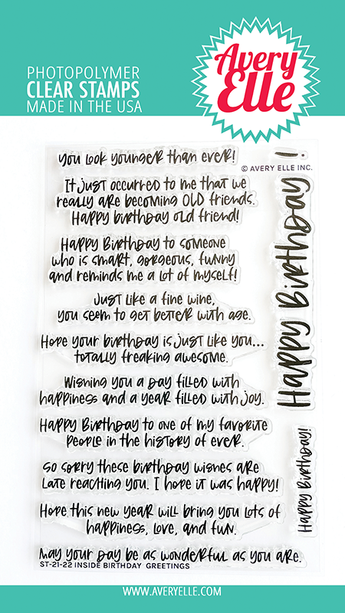 PHOTOPOLYMER
CLEAR STAMPS
MADE IN THE USA
Avery
Elle
© AVERY ELLE INC.
You look younger than ever!
It just occurred to me that we
really are becoming OLD friends.
Happy birthday old friend!
Happy Birthday to someone
who is smart, gorgeous, funny
and reminds me a lot of myself!
Just like a fine wine,
you seem to get better with age.
Hope your birthday is just like you...
totally freaking awesome.
Wishing you a day filled with
happiness and a year filled with joy.
Happy Birthday to one of my favorite
people in the history of ever.
So sorry these birthday wishes are
late reaching you. I hope it was happy!
Hope this new year will bring you lots of
happiness, love, and fun.
May your day be as wonderful as you are.
ST-21-22 INSIDE BIRTHDAY GREETINGS
Happy Birthday!
Happy Birthday!
WWW.AVERYELLE.COM